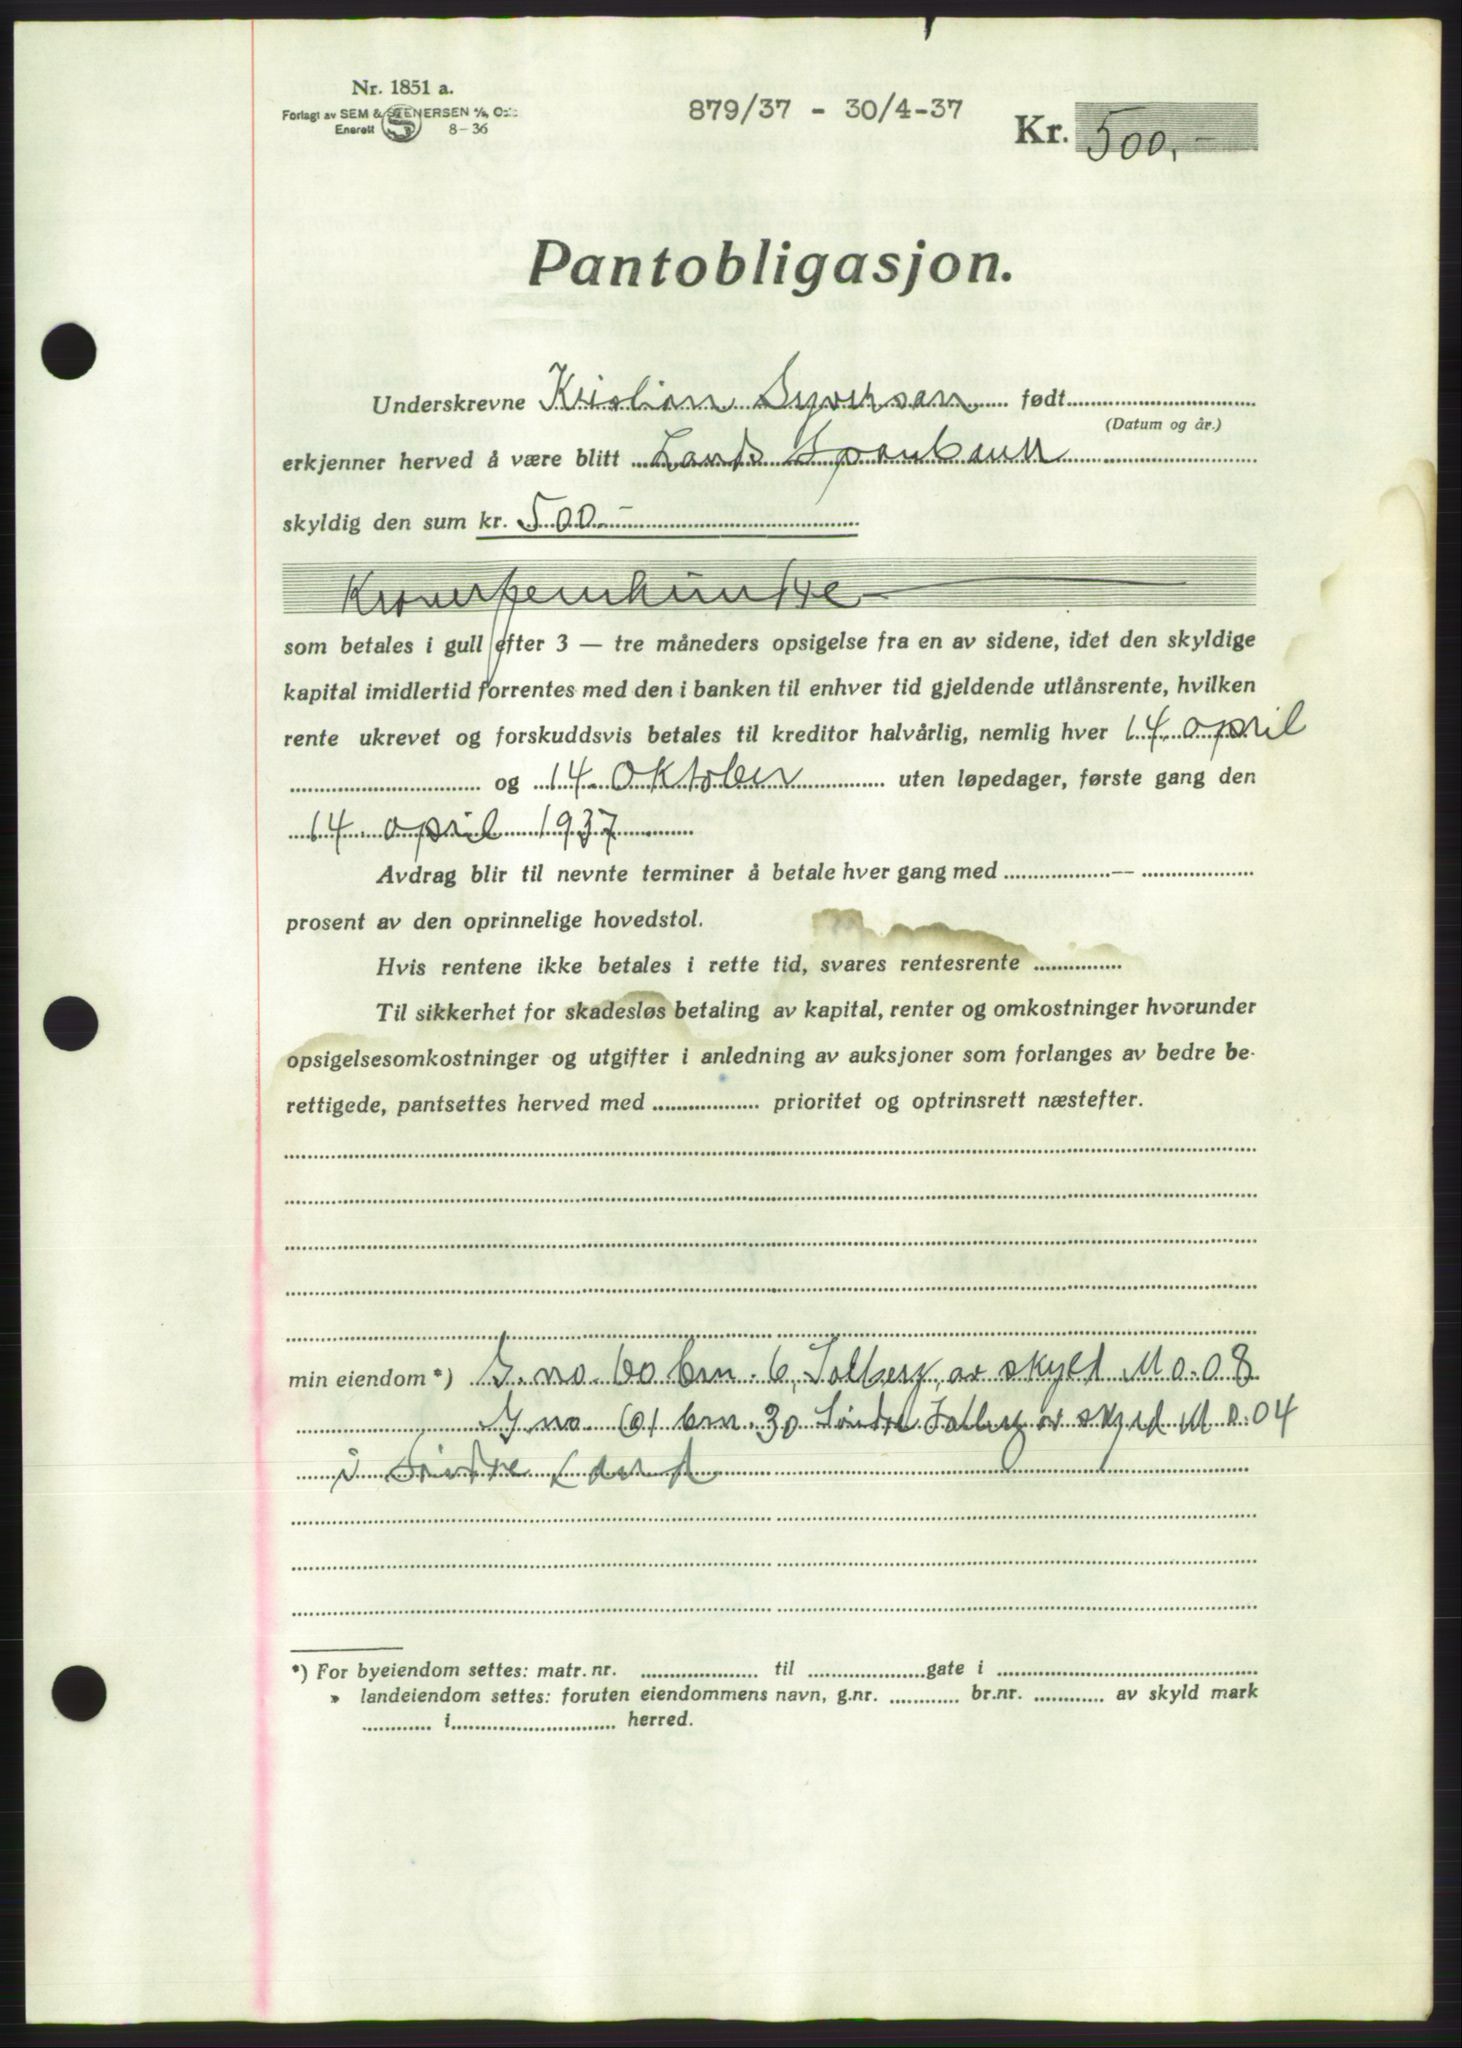 Nr. 1851 a.
Forlagt av SEM & STENERSEN A/S, Oslo
Enerett 8-36
879/37 - 30/4-37
Kr. 500,-
Pantobligasjon.
Underskrevne Kristian Syversen født
(Datum og år.)
erkjenner herved å være blitt Lands Sparebank
skyldig den sum kr. 500.-
Kroner femhundre
som betales i gull efter 3 — tre måneders opsigelse fra en av sidene, idet den skyldige
kapital imidlertid forrentes med den i banken til enhver tid gjeldende utlånsrente, hvilken
rente ukrevet og forskuddsvis betales til kreditor halvårlig, nemlig hver 14. april
og 14. oktober uten løpedager, første gang den
14. april 1937
Avdrag blir til nevnte terminer å betale hver gang med —
prosent av den oprinnelige hovedstol.
Hvis rentene ikke betales i rette tid, svares rentesrente
Til sikkerhet for skadesløs betaling av kapital, renter og omkostninger hvorunder
opsigelsesomkostninger og utgifter i anledning av auksjoner som forlanges av bedre be-
rettigede, pantsettes herved med prioritet og optrinsrett næstefter.
min eiendom *) G. no. 60 brn. 6, Solberg, av skyld M 0.08
G. no 61 brn. 30 Søndre Solberg av skyld M 0.04
i Søndre Land
*) For byeiendom settes: matr. nr. til gate i
» landeiendom settes: foruten eiendommens navn, g.nr. br.nr. av skyld mark
i herred.